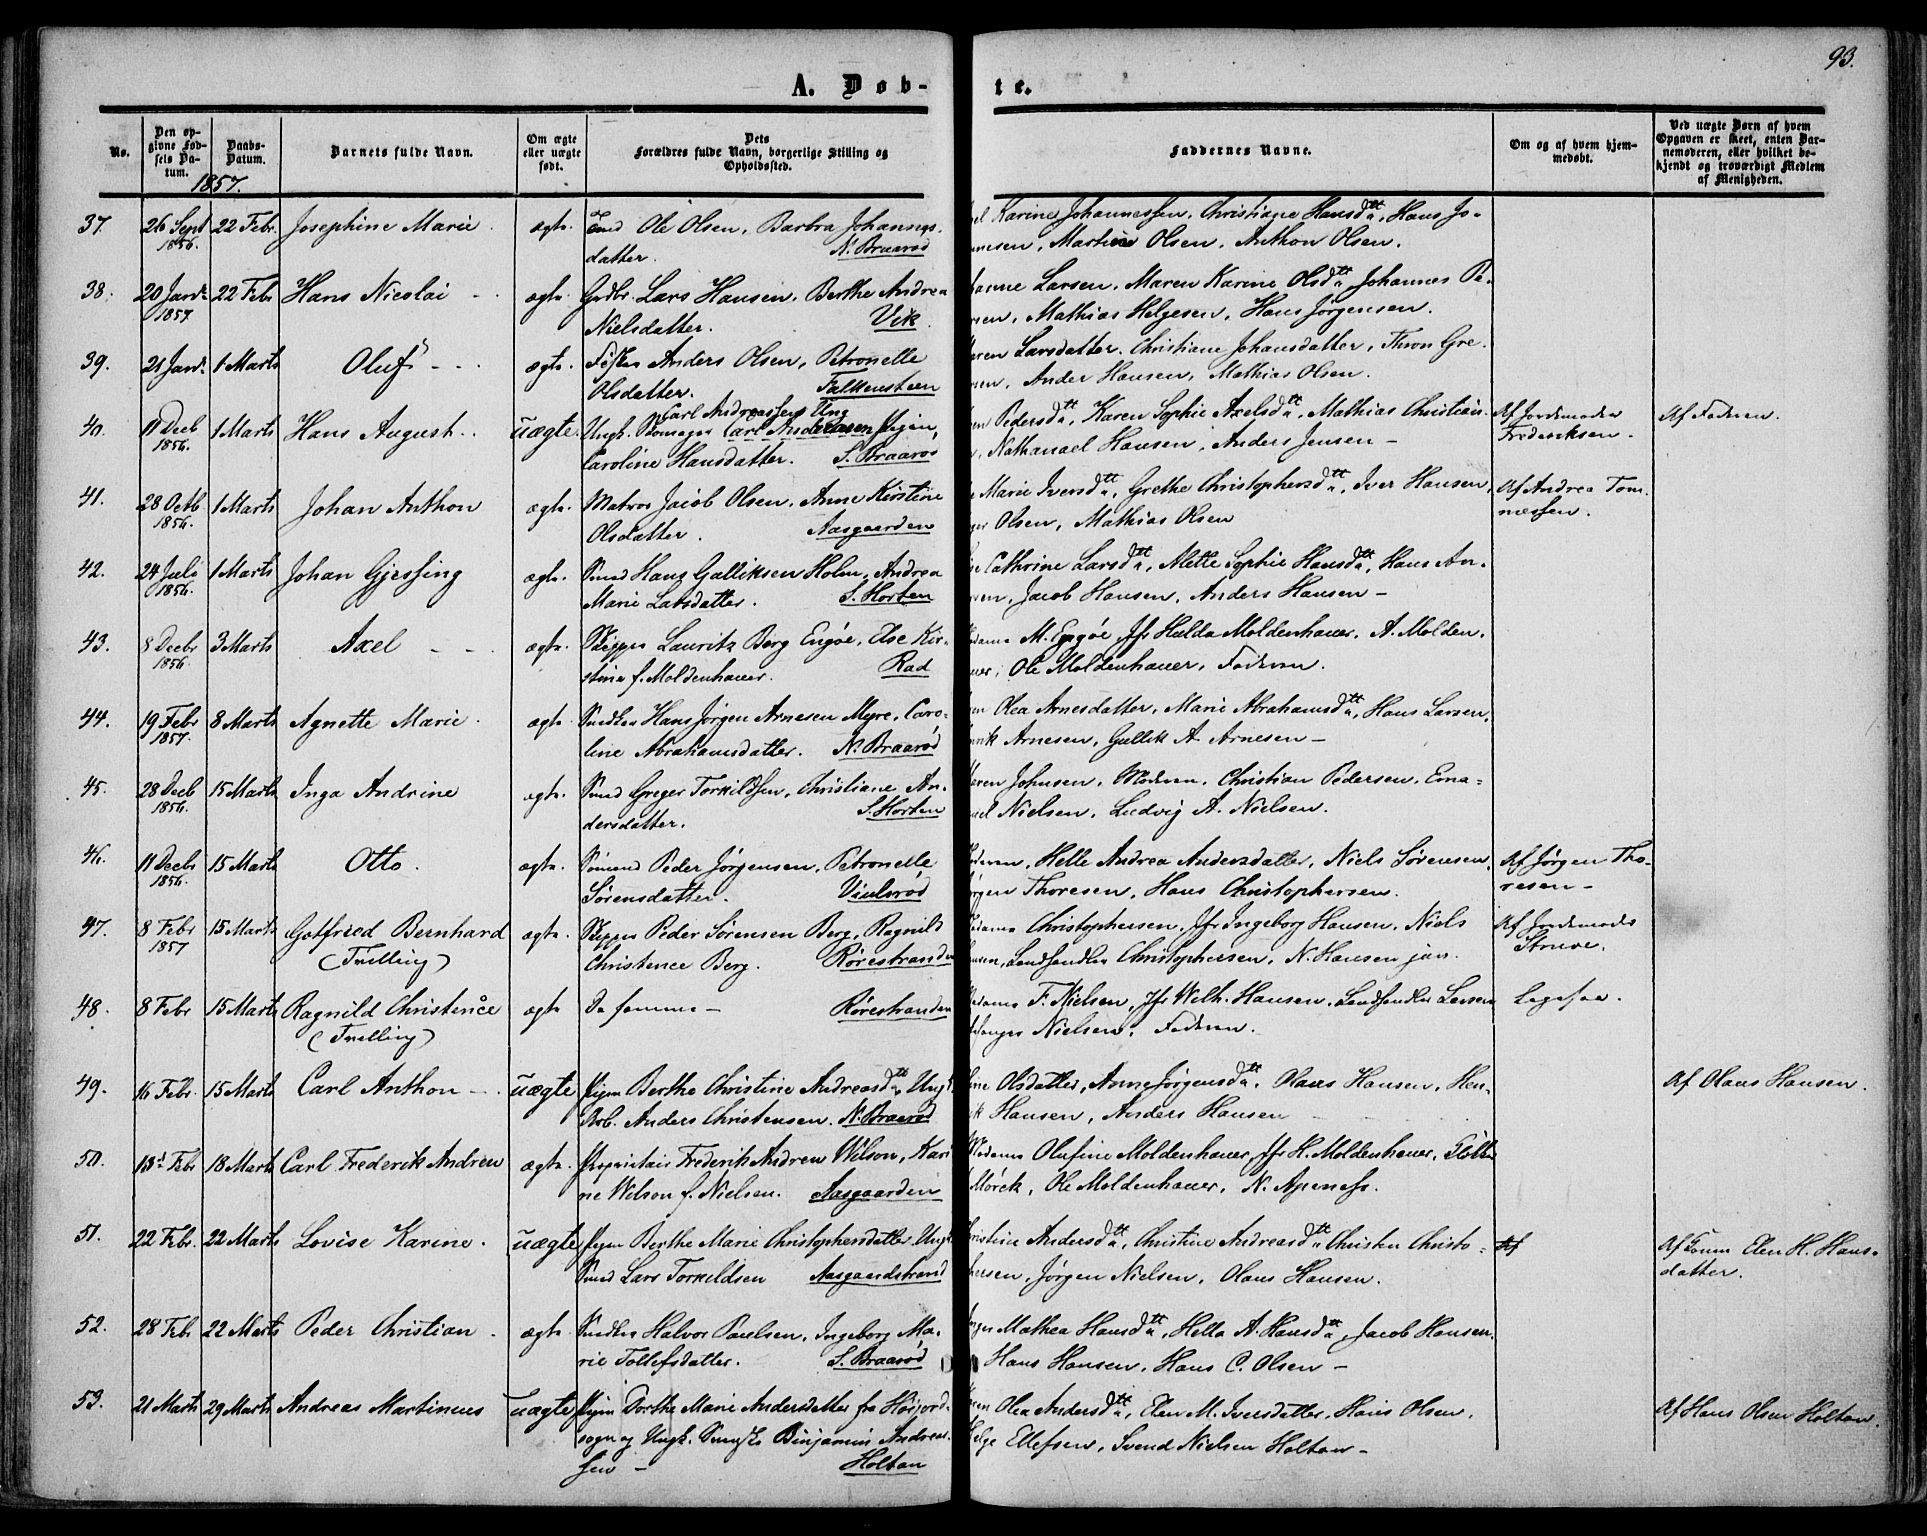 93.
A. Døb-
te.
No.
Den opgivne Fødsels Datum.
Daabs-Datum.
Barnets fulde Navn.
Om ægte eller uægte født.
Dets Forældres fulde Navn, borgerlige Stilling og Opholdssted.
Faddernes Navne.
Om og af hvem hjemmedøbt.
Ved uægte Børn af hvem Opgaven er skeet, enten Barnemoderen, eller hvilket bekjendt og troværdigt Medlem af Menigheden.
1857.
37. 26 Sept 22 Febr. Josephine Marie. ægte. Ole Olsen, Barbra Johannes- Karine Johannessen, Christiane Hansdtt, Hans Jo-
1856. datter. N. Braarød Martine Olsen, Anthon Olsen.
38. 20 Janr 22 Febr Hans Nicolai ægte. Grdbr. Lars Hansen, Berthe Andrea Larsen, Maren Karine Olsdtt, Johannes Pe-
1857. Nielsdatter. Vik. Mathias Helgesen, Hans Jørgensen.
39. 21 Janr. 1 Marts Oluf ægte. Anders Olsen, Petronelle Larsdatter, Christiane Johansdatter, Thron Gre-
Olsdatter. Falkensteen Ander Hansen, Mathias Olsen.
40. 11 Decb 1 Marts Hans August uægte. Ungk. Carl Andreassen Pigen, Pedersdtt, Karen Sophie Axelsdtt, Mathias Christian- Af Jordemoder Af Faderen.
1856. Caroline Hansdatter. S. Braarød Nathanael Hansen, Anders Jensen – Frederiksen.
41. 28 Octb 1 Marts Johan Anthon ægte. Matros Jacob Olsen, Anne Kirstine Marie Iversdtt, Grethe Christophersdtt, Iver Hansen, Af Andrea Tom-
1856. Olsdatter. Aasgaarden Olsen, Mathias Olsen næssen.
42. 24 Juli 1 Marts Johan Gjessing ægte. Smed Hans Gulliksen Holm, Andrea Cathrine Larsdtt, Mette Sophie Hansdtt, Hans An-
1856. Marie Larsdatter. S. Horten Jacob Hansen, Anders Hansen –
43. 8 Decbr 3 Marts Axel ægte. Skipper Lauritz Berg Engøe, Else Kir- M. Engøe, Jfr Hulda Moldenhauer, A. Molden-
1856 stine f. Moldenhauer. Rad Ole Moldenhauer, Faderen.
44. 19 Febr 8 Marts Agnette Marie. ægte. Snedker Hans Jørgen Arnesen Myre, Caro- Olea Arnesdatter, Marie Abrahamsdtt, Hans Larsen,
1857. line Abrahamsdatter. N. Braarød Arnesen, Gullik A. Arnesen –
45. 28 Decb 15 Marts Inga Andrine ægte. Smed Greger Torkildsen, Christiane An- Johnsen, Moderen, Christian Pedersen, Ema-
1856. dersdatter. S. Horten Nielsen, Ludvig A. Nielsen.
46. 11 Decbr 15 Marts Otto. ægte. Sømand Peder Jørgensen, Petronelle Helle Andrea Andersdatter, Niels Sørensen, Af Jørgen Tho-
1856. Sørensdatter. Viulsrød Thoresen, Hans Christophersen. resen –
47. 8 Febr 15 Marts Gotfried Bernhard ægte. Skipper Peder Sørensen Berg, Ragnild Christophersen, Jfr Ingeborg Hansen, Niels Af Jordemoder
1857 (Tvilling) Christence Berg. Rørestranden Landhandler Christophersen, N. Hansen jun. Struve.
48. 8 Febr 15 Marts Ragnild Christence ægte De samme – Rørestranden F. Nielsen, Jfr Wilh. Hansen, Landhandler Larsen Ligesaa.
(Tvilling) Nielsen, Faderen.
49. 16 Febr. 15 Marts Carl Anthon uægte Pigen Berthe Christine Andreasdtt Ungk Olsdatter, Anne Jørgensdtt, Olaus Hansen, Hen- Af Olaus Hansen.
Arb. Anders Christensen. N. Braarød Hansen, Anders Hansen
50. 18 Marts Carl Frederik Andrew ægte. Proprietair Frederik Andrew Wilson, Kari- Madame Olufine Moldenhauer, Jfr H. Moldenhauer,
ne Wilson f. Nielsen. Aasgaarden Mørck, Ole Moldenhauer, N. Apeness.
51. 22 Febr. 22 Marts Lovise Karine. uægte Pigen Berthe Marie Christophersdatter, Ungk Andersdtt, Christine Andreasdtt Christen Christo- Af Elen H. Hans-
Smed Lars Torkildsen Aasgaardstrand Jørgen Nielsen, Olaus Hansen. datter.
52. 28 Febr 22 Marts Peder Christian. ægte. Snedker Halvor Paulsen, Ingeborg Ma- Mathea Hansdtt, Hella A. Hansdtt, Jacob Hansen,
rie Tollefsdatter. S. Braarød Hans Hansen, Hans C. Olsen –
53. 21 Marts 29 Marts Andreas Martinus uægte Pigen Dorthe Marie Andersdatter fra Olea Andersdtt, Elen M. Iversdatter, Hans Olsen, Af Hans Olsen Holtan.
sogn og Ungk. Binjamin Andreas- Helge Ellefsen, Svend Nielsen Holtan –
sen – Holtan